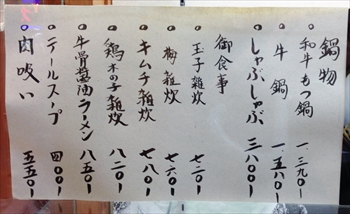 鍋物
和牛もつ鍋 一、三九〇ー
牛鍋 一、五八〇ー
しゃぶしゃぶ 三八〇〇ー
御食事
玉子雑炊 七二〇ー
梅雑炊 七六〇ー
キムチ雑炊 七八〇ー
鶏木の子雑炊 八二〇ー
牛骨醤油ラーメン 八五〇ー
テールスープ 四〇〇ー
肉吸い 五五〇ー